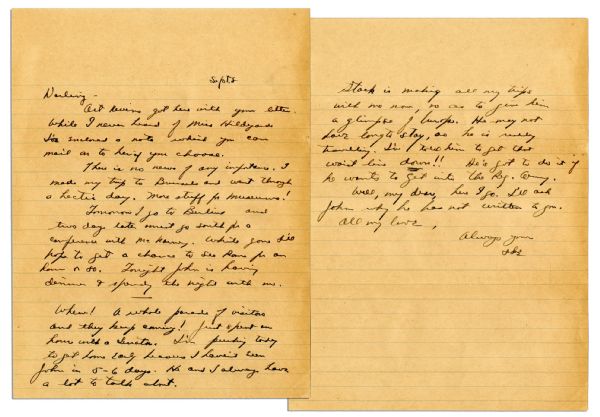 Sept 8
Darling -
Art Nevins got here with your letter.
While I never heard of Miss Hildyard
I've enclosed a note which you can
mail to her if you choose.
There is no news of any importance. I
made my trip to Brussels and went through
a hectic day. More stuff for museums!
Tomorrow I go to Berlin and
two days later must go south for a
conference with McNarney. While gone I'll
hope to get a chance to see for an
hour or so. Tonight John is having
dinner & spending the night with me.
Whew! A whole parade of visitors
and they keep coming! Just spent an
hour with a Senator. I'm pushing today
to get home early because I haven't seen
John in 5-6 days. He and I always have
a lot to talk about.
Stack is making all my trips
with me now, so as to give him
a glimpse of Europe. He may not
have long to stay, as he is really
I've told him to get that
waist line down!! He's got to do it if
he wants to get into the Reg. Army.
Well, my dear, here I go. I'll ask
John why he has not written to you.
All my love,
Always your
Ike